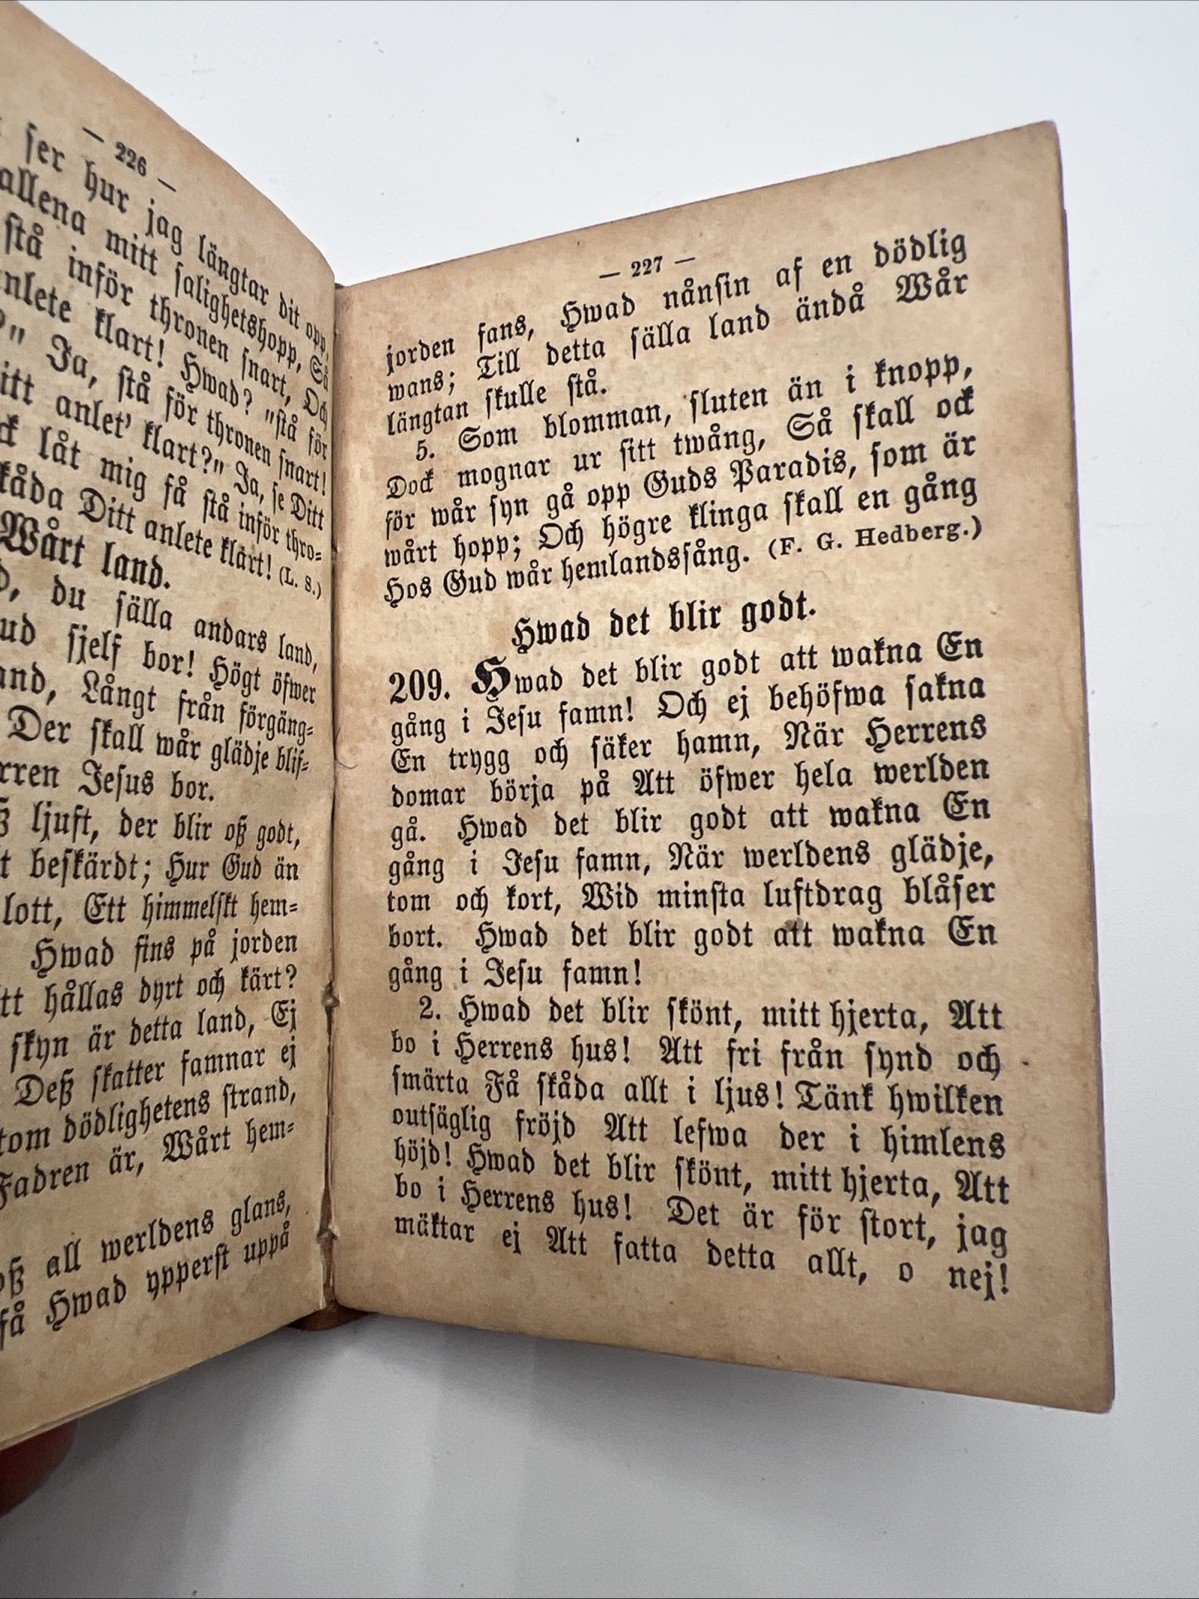 — 226 —
ser hur jag längtar dit opp,
allena mitt salighetshopp, Så
stå inför thronen snart, Och
anlete klart! Hwad? "stå för
Ja, stå för thronen snart!
anlet' klart?" Ja, se Ditt
låt mig få stå inför thro-
skåda Ditt anlete klart! (L. S.)
Wårt land.
du sälla andars land,
sjelf bor! Högt öfwer
Långt från förgäng-
Der skall wår glädje blif-
Jesus bor.
ljuft, der blir oß godt,
beskärdt; Hur Gud än
lott, Ett himmelskt hem-
Hwad fins på jorden
hållas dyrt och kärt?
skyn är detta land, Ej
Deß skatter famnar ej
dödlighetens strand,
Fadren är, Wårt hem-
all werldens glans,
få Hwad ypperst uppå
— 227 —
jorden fans, Hwad nånsin af en dödlig
wans; Till detta sälla land ändå Wår
längtan skulle stå.
5. Som blomman, sluten än i knopp,
Dock mognar ur sitt twång, Så skall ock
för wår syn gå opp Guds Paradis, som är
wårt hopp; Och högre klinga skall en gång
Hos Gud wår hemlandssång. (F. G. Hedberg.)
Hwad det blir godt.
209. Hwad det blir godt att wakna En
gång i Jesu famn! Och ej behöfwa sakna
En trygg och säker hamn, När Herrens
domar börja på Att öfwer hela werlden
gå. Hwad det blir godt att wakna En
gång i Jesu famn, När werldens glädje,
tom och kort, Wid minsta luftdrag blåser
bort. Hwad det blir godt att wakna En
gång i Jesu famn!
2. Hwad det blir skönt, mitt hjerta, Att
bo i Herrens hus! Att fri från synd och
smärta Få skåda allt i ljus! Tänk hwilken
outsäglig fröjd Att lefwa der i himlens
höjd! Hwad det blir skönt, mitt hjerta, Att
bo i Herrens hus! Det är för stort, jag
mäktar ej Att fatta detta allt, o nej!